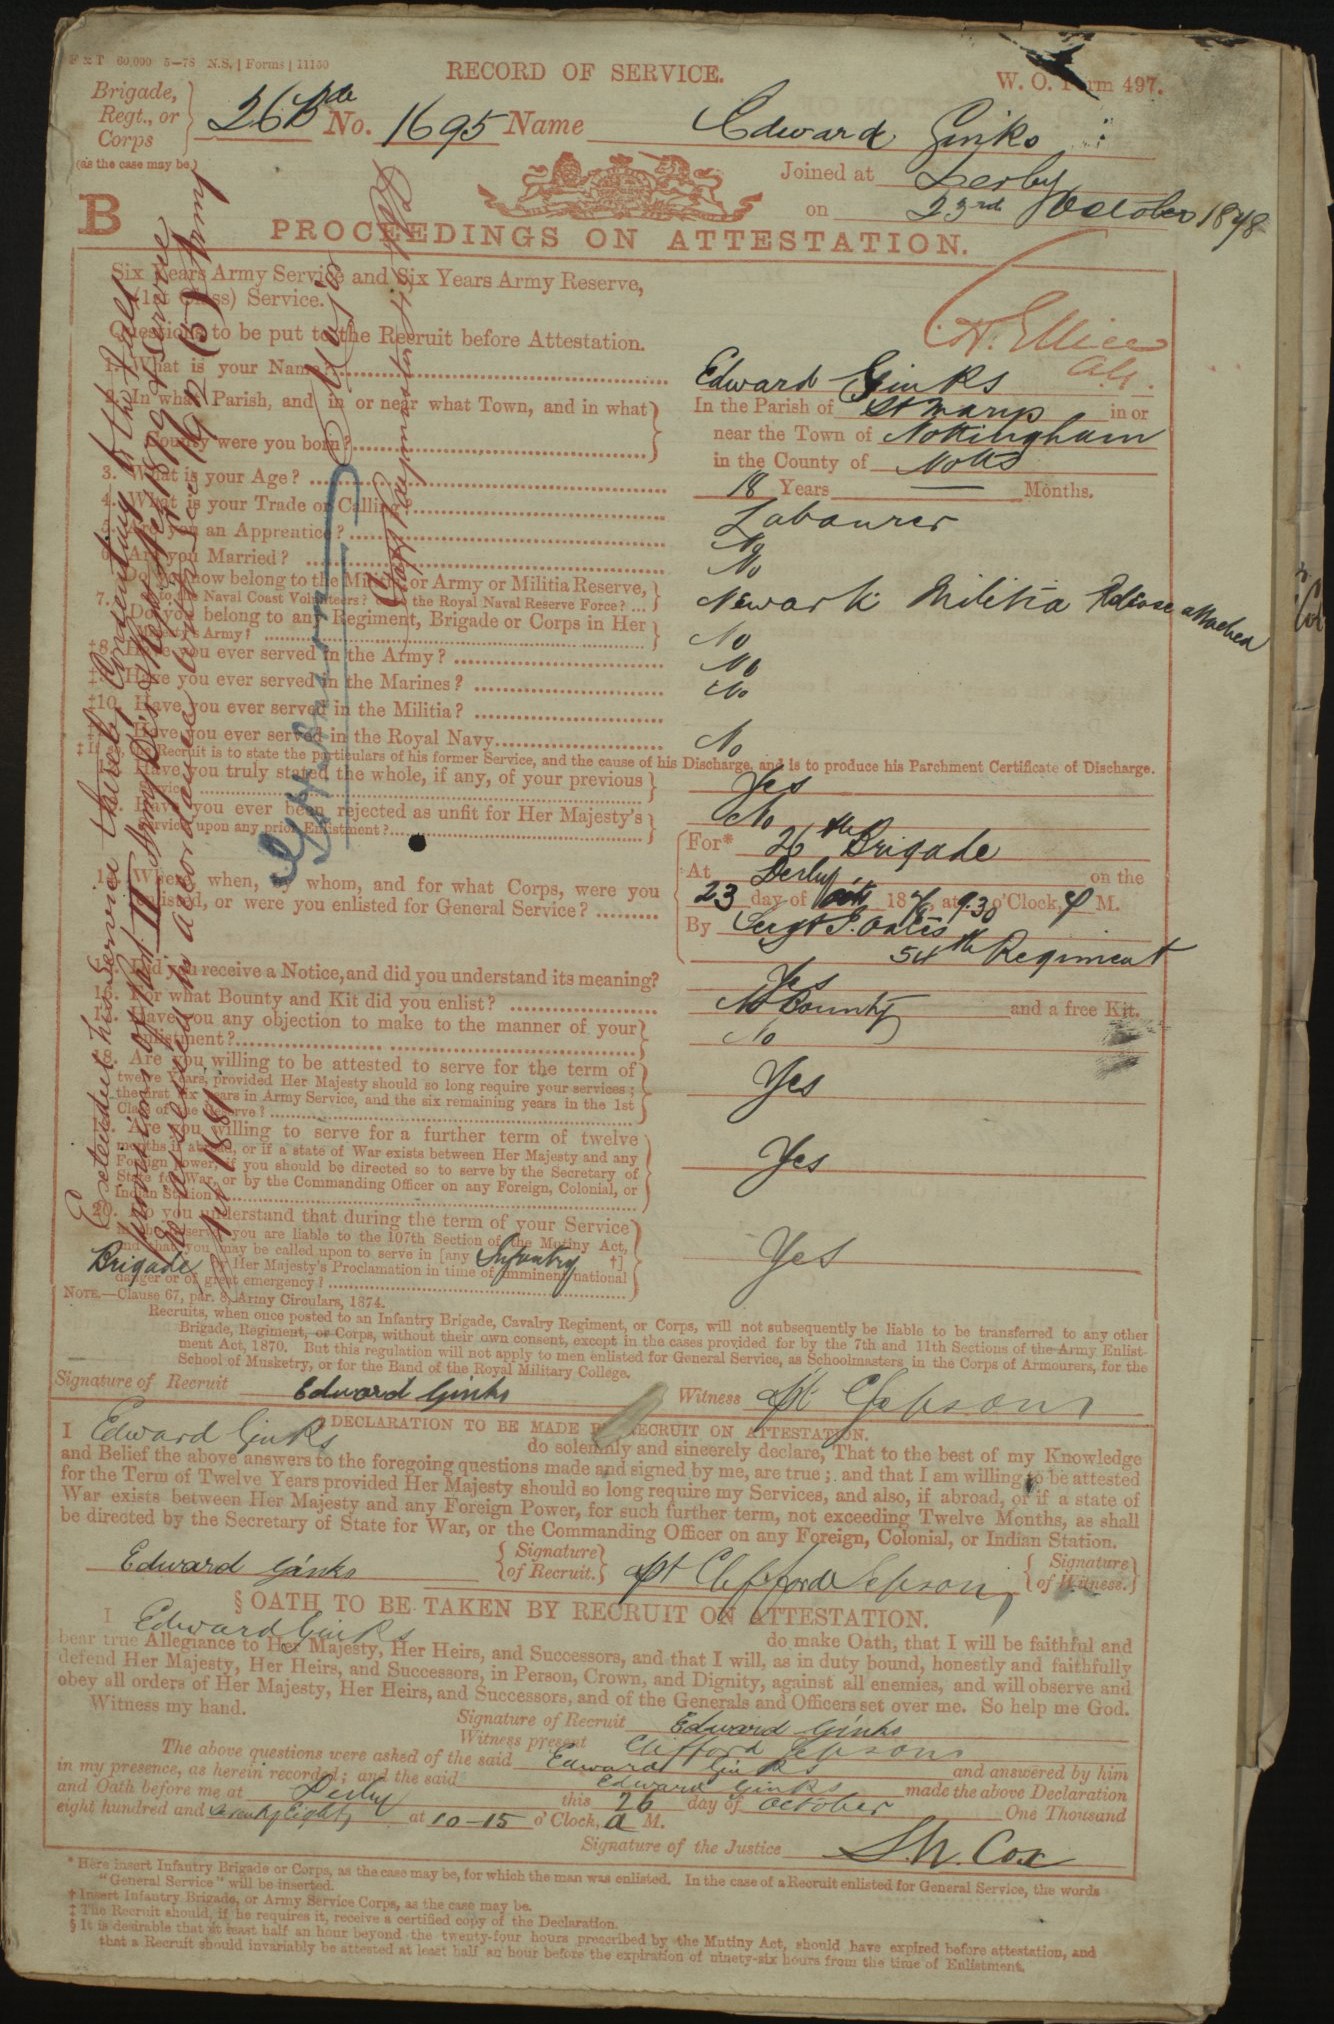 F & T 60,000 5—78 N.S. | Forms | 11150
RECORD OF SERVICE.
W. O. Form 497.
Brigade, Regt., or Corps (as the case may be.) 26 Bde No. 1695 Name Edward Ginks
Joined at Derby
on 23rd October 1878
B
PROCEEDINGS ON ATTESTATION.
Six Years Army Service and Six Years Army Reserve,
(1st Class) Service.
Questions to be put to the Recruit before Attestation.
1. What is your Name? Edward Ginks
2. In what Parish, and in or near what Town, and in what County were you born?
In the Parish of St Marys in or
near the Town of Nottingham
in the County of Notts
3. What is your Age? 18 Years — Months.
4. What is your Trade or Calling? Labourer
5. Are you an Apprentice? No
6. Are you Married? No
7. Do you now belong to the Militia, or Army or Militia Reserve,
to the Naval Coast Volunteers? the Royal Naval Reserve Force? ...
Newark Militia Release attached
Do you belong to any Regiment, Brigade or Corps in Her
Majesty's Army? No
‡8. Have you ever served in the Army? No
Have you ever served in the Marines? No
‡10. Have you ever served in the Militia?
Have you ever served in the Royal Navy No
Recruit is to state the particulars of his former Service, and the cause of his Discharge, and is to produce his Parchment Certificate of Discharge.
Have you truly stated the whole, if any, of your previous
Yes
Have you ever been rejected as unfit for Her Majesty's
Service upon any prior Enlistment? No
Where, when, by whom, and for what Corps, were you
enlisted, or were you enlisted for General Service?
For* 26th Brigade
At Derby on the
23 day of Oct 1878, at 9.30 o'Clock, M.
By Sergt
54th Regiment
Did you receive a Notice, and did you understand its meaning? Yes
16. For what Bounty and Kit did you enlist? No Bounty and a free Kit.
Have you any objection to make to the manner of your
Enlistment? No
Are you willing to be attested to serve for the term of
twelve Years, provided Her Majesty should so long require your services;
the first six years in Army Service, and the six remaining years in the 1st
Class of the Reserve? Yes
Are you willing to serve for a further term of twelve
months if abroad, or if a state of War exists between Her Majesty and any
Foreign Power, if you should be directed so to serve by the Secretary of
State for War, or by the Commanding Officer on any Foreign, Colonial, or
Indian Station? Yes
20. Do you understand that during the term of your Service
you are liable to the 107th Section of the Mutiny Act,
and that you may be called upon to serve in [any Infantry †]
Brigade Her Majesty's Proclamation in time of imminent national
danger or of great emergency? Yes
NOTE.—Clause 67, par. 8, Army Circulars, 1874.
Recruits, when once posted to an Infantry Brigade, Cavalry Regiment, or Corps, will not subsequently be liable to be transferred to any other
Brigade, Regiment, or Corps, without their own consent, except in the cases provided for by the 7th and 11th Sections of the Army Enlist-
ment Act, 1870. But this regulation will not apply to men enlisted for General Service, as Schoolmasters, in the Corps of Armourers, for the
School of Musketry, or for the Band of the Royal Military College.
Signature of Recruit Edward Ginks Witness
DECLARATION TO BE MADE BY RECRUIT ON ATTESTATION.
I Edward Ginks do solemnly and sincerely declare, That to the best of my Knowledge
and Belief the above answers to the foregoing questions made and signed by me, are true; and that I am willing to be attested
for the Term of Twelve Years provided Her Majesty should so long require my Services, and also, if abroad, or if a state of
War exists between Her Majesty and any Foreign Power, for such further term, not exceeding Twelve Months, as shall
be directed by the Secretary of State for War, or the Commanding Officer on any Foreign, Colonial, or Indian Station.
Edward Ginks { Signature of Recruit. } Clifford Jepson { Signature of Witness. }
§ OATH TO BE TAKEN BY RECRUIT ON ATTESTATION.
I Edward Ginks do make Oath, that I will be faithful and
bear true Allegiance to Her Majesty, Her Heirs, and Successors, and that I will, as in duty bound, honestly and faithfully
defend Her Majesty, Her Heirs, and Successors, in Person, Crown, and Dignity, against all enemies, and will observe and
obey all orders of Her Majesty, Her Heirs, and Successors, and of the Generals and Officers set over me. So help me God.
Witness my hand.
Signature of Recruit Edward Ginks
Witness present Clifford Jepson
The above questions were asked of the said Edward Ginks and answered by him
in my presence, as herein recorded; and the said Edward Ginks made the above Declaration
and Oath before me at Derby this 26 day of October One Thousand
eight hundred and seventy Eight, at 10-15 o'Clock, a M.
Signature of the Justice S.W. Cox
* Here insert Infantry Brigade or Corps, as the case may be, for which the man was enlisted. In the case of a Recruit enlisted for General Service, the words
"General Service" will be inserted.
† Insert Infantry Brigade, or Army Service Corps, as the case may be.
‡ The Recruit should, if he requires it, receive a certified copy of the Declaration.
§ It is desirable that at least half an hour beyond the twenty-four hours prescribed by the Mutiny Act, should have expired before attestation, and
that a Recruit should invariably be attested at least half an hour before the expiration of ninety-six hours from the time of Enlistment.